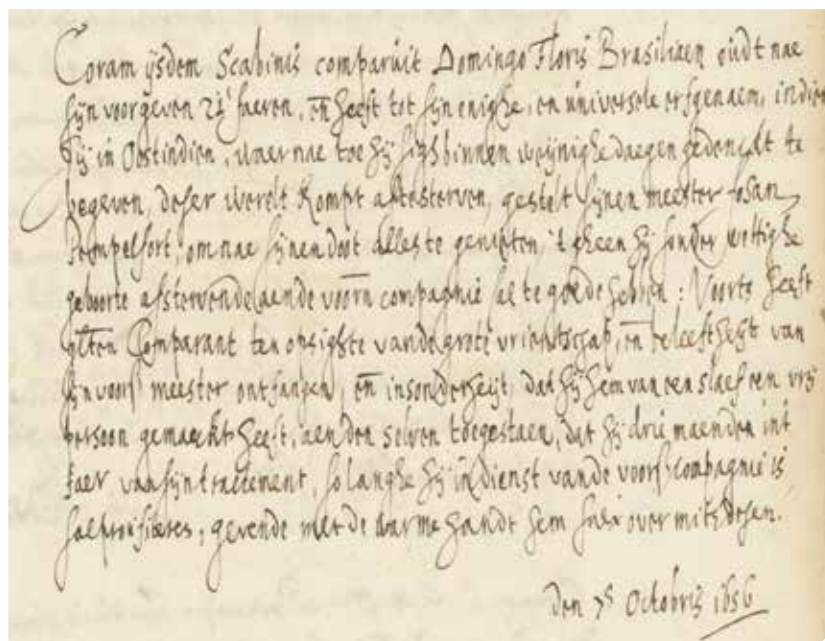 Coram ijsdem Scabinis comparuit Domingo Floris Brasiliaen oudt nae
sijn voorgeven 25 jaeren, en heeft tot sijn enighe, en universele erfgenaem, indien
hij in Oostindien, waer nae toe hij sich binnen weijnighe daegen gedenckt te
begeven, deser werelt kompt aftesterven, gestelt sijnen meester
Pempelfort, om nae sijnen doot alles te genieten, 't gheen hij sonder wettighe
geboorte afstervende aende voorn compagnie sal te goede hebben: Voorts heeft
Comparant ten opsighte vande grote vrientschap, en beleeftheijt van
sijn voors meester ontfangen, en insonderheijt, dat hij hem van een slaef een vrij
persoon gemaeckt heeft, aenden selven toegestaen, dat hij drie maenden int
Jaer van sijn tractement, so langhe hij in dienst vande voors compagnie is
sal profiteren, gevende met de warme handt hem sulx over mits desen.
den 7s Octobris 1656